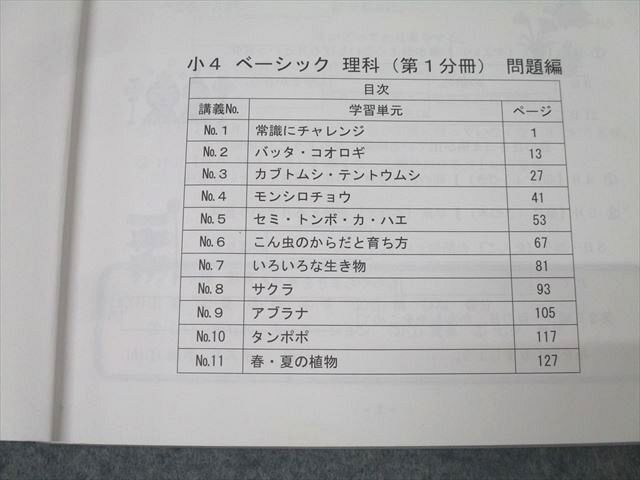 小４ ベーシック 理科（第１分冊） 問題編
目次
講義No. 学習単元 ページ
No.1 常識にチャレンジ 1
No.2 バッタ・コオロギ 13
No.3 カブトムシ・テントウムシ 27
No.4 モンシロチョウ 41
No.5 セミ・トンボ・カ・ハエ 53
No.6 こん虫のからだと育ち方 67
No.7 いろいろな生き物 81
No.8 サクラ 93
No.9 アブラナ 105
No.10 タンポポ 117
No.11 春・夏の植物 127